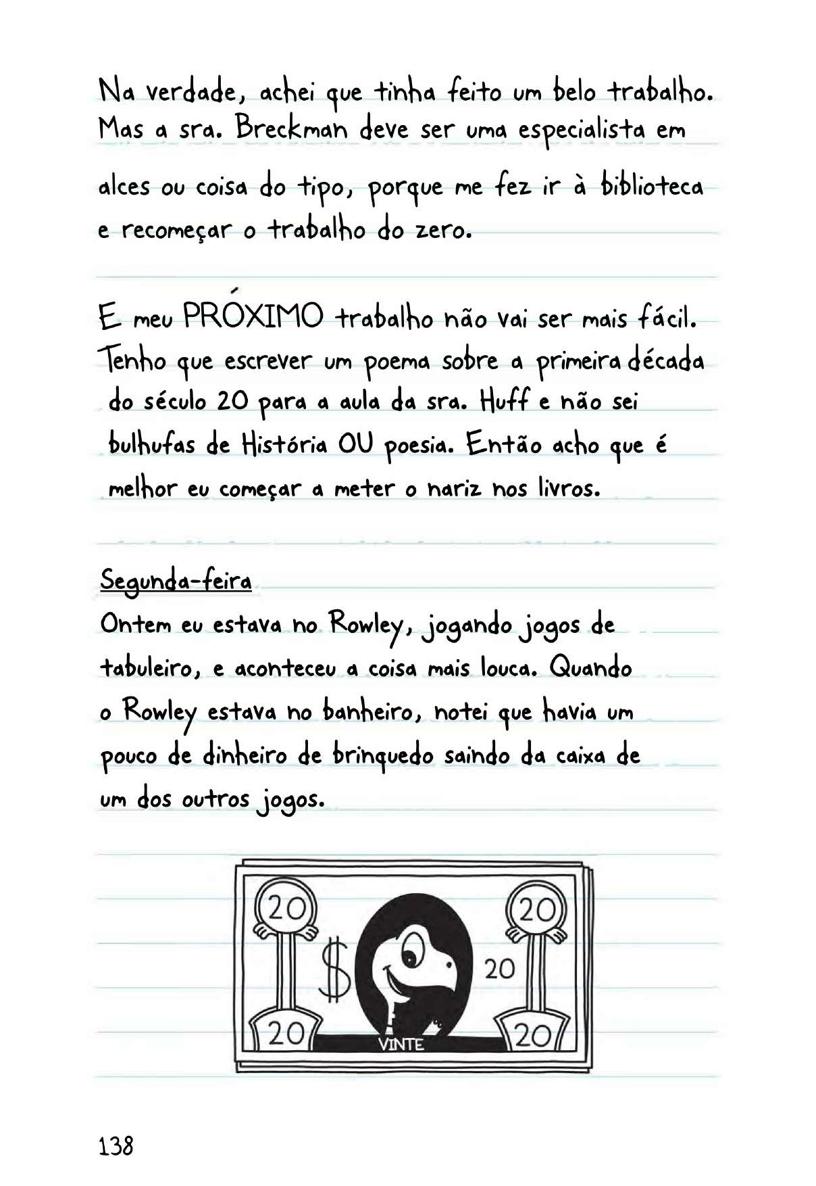 Na verdade, achei que tinha feito um belo trabalho.
Mas a sra. Breckman deve ser uma especialista em
alces ou coisa do tipo, porque me fez ir à biblioteca
e recomeçar o trabalho do zero.
E meu PRÓXIMO trabalho não vai ser mais fácil.
Tenho que escrever um poema sobre a primeira década
do século 20 para a aula da sra. Huff e não sei
bulhufas de História OU poesia. Então acho que é
melhor eu começar a meter o nariz nos livros.
Segunda-feira
Ontem eu estava no Rowley, jogando jogos de
tabuleiro, e aconteceu a coisa mais louca. Quando
o Rowley estava no banheiro, notei que havia um
pouco de dinheiro de brinquedo saindo da caixa de
um dos outros jogos.
20 20
$ 20
20 VINTE 20
138